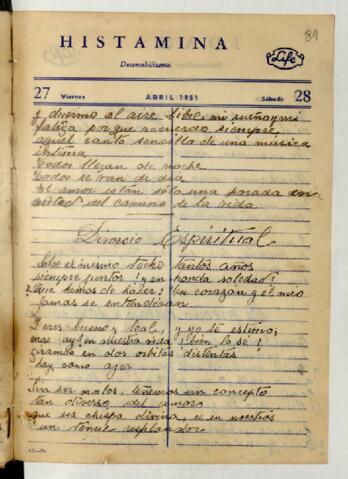 81
HISTAMINA
Life
Desensibilizante
27 Viernes ABRIL 1951 Sábado 28
y duermo al aire libre, mi sueño y mi
fatiga porque recuerdo siempre
aquel canto sencilla de una musica
intima
Todos llegan de noche
todos se van de dia
El amor es tan sólo una posada en
mitad del camino de la vida
Divorcio Espiritual
el mismo techo tantos años
siempre juntos! y en honda soledad!
Que hemos de hacer! tu corazón y el mio
jamas se entenderan
Y eres bueno y leal, y yo te estimo;
mas en nuestra vida bien lo se!
giramos en dos orbitas distintas
hoy como ayer
Sin ser malos, tenemos un concepto
tan diverso del amor
que su chispa divina, es en nosotros
un tenue resplandor